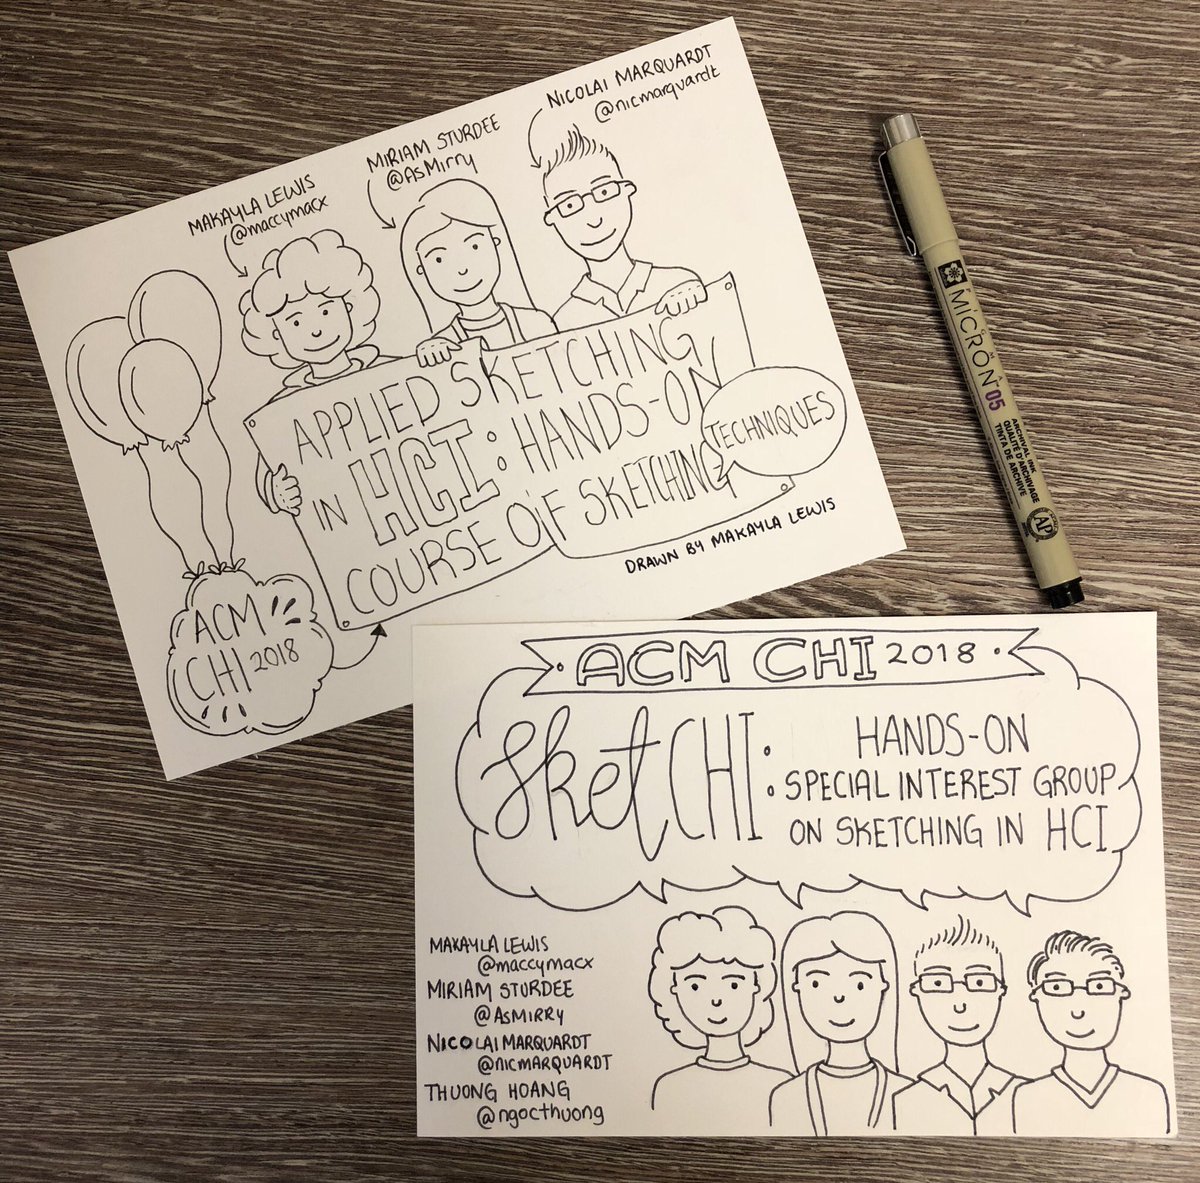 NICOLAI MARQUARDT
@nicmarquardt
MIRIAM STURDEE
@AsMirry
MAKAYLA LEWIS
@maccymacx
APPLIED SKETCHING
IN HCI: HANDS-ON
COURSE OF SKETCHING
TECHNIQUES
DRAWN BY MAKAYLA LEWIS
ACM
CHI 2018
PIGMA
MICRON 05
ARCHIVAL INK
QUALITÉ D'ARCHIVAGE
TINTA DE ARCHIVE
AP
ACM CHI 2018
SketCHI:
HANDS-ON
SPECIAL INTEREST GROUP
ON SKETCHING IN HCI
MAKAYLA LEWIS
@maccymacx
MIRIAM STURDEE
@ASMIRRY
NICOLAI MARQUARDT
@NICMARQUARDT
THUONG HOANG
@ngocthuong